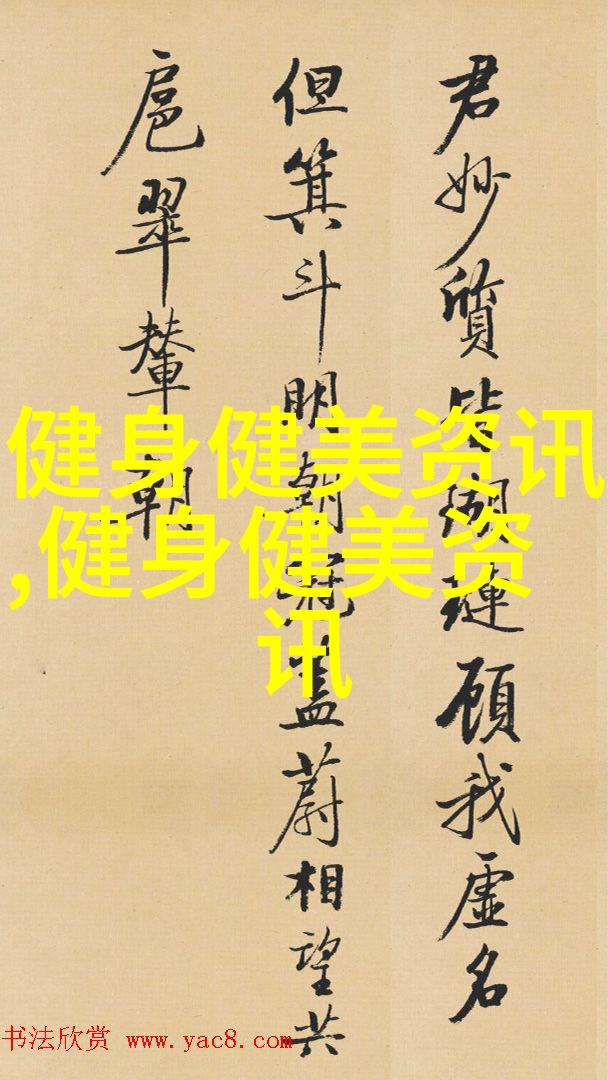 君妙質皆瑚璉顧我虛名
但箕斗明朝冠蓋蔚相望共
扈翠輦朝
健身健美资讯
,健身健美资
讯
书法欣赏 www.yac8.com